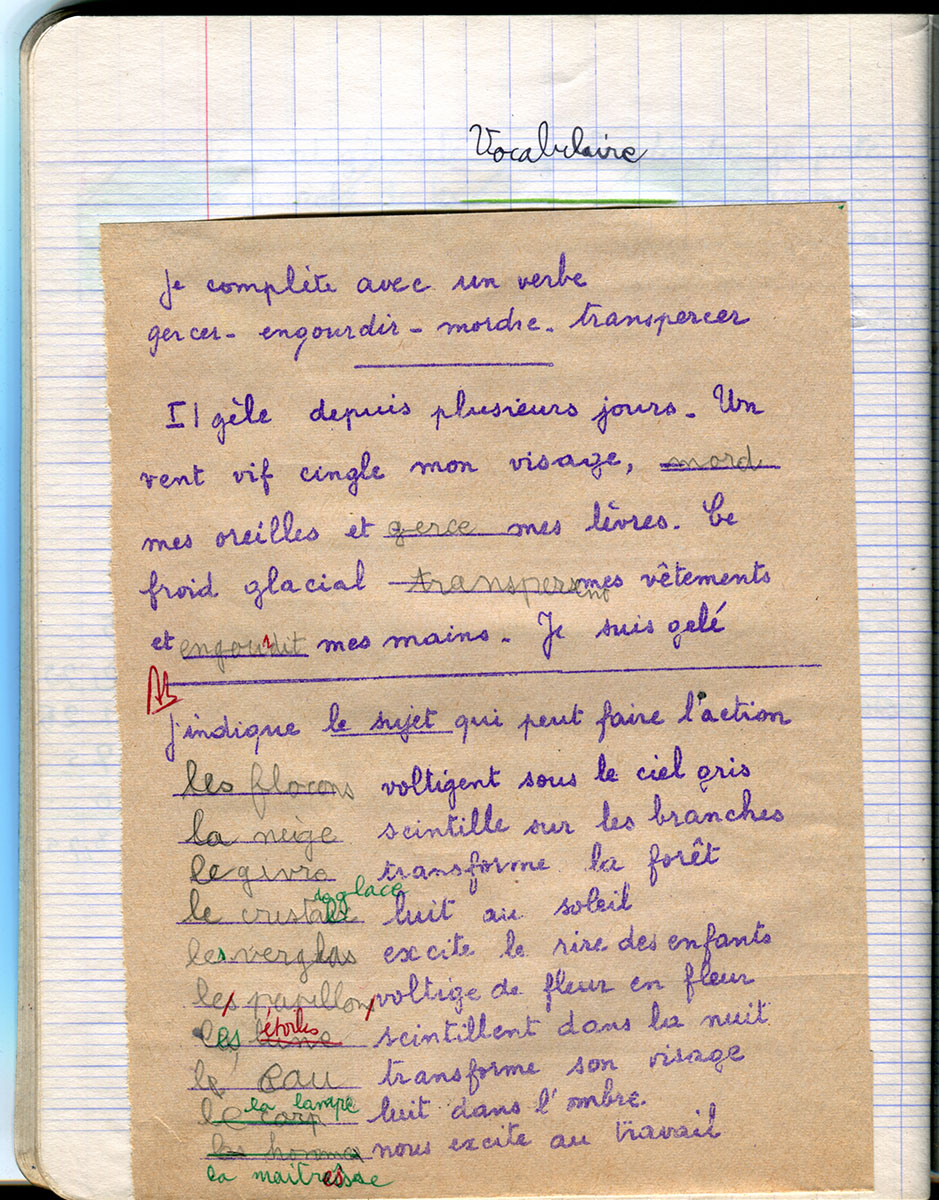 Vocabulaire
Je complète avec un verbe
gercer - engourdir - mordre - transpercer
Il gèle depuis plusieurs jours - Un
vent vif cingle mon visage, mord
mes oreilles et gerce mes lèvres. Ce
froid glacial transpersent mes vêtements
et engourdit mes mains - Je suis gelé
J'indique le sujet qui peut faire l'action
les flocons voltigent sous le ciel gris
la neige scintille sur les branches
le givre transforme la forêt
le cristal de glace luit au soleil
les verglas excite le rire des enfants
les papillons voltige de fleur en fleur
les étoiles scintillent dans la nuit
le eau transforme son visage
la lampe luit dans l'ombre.
nous excite au travail
la maitresse